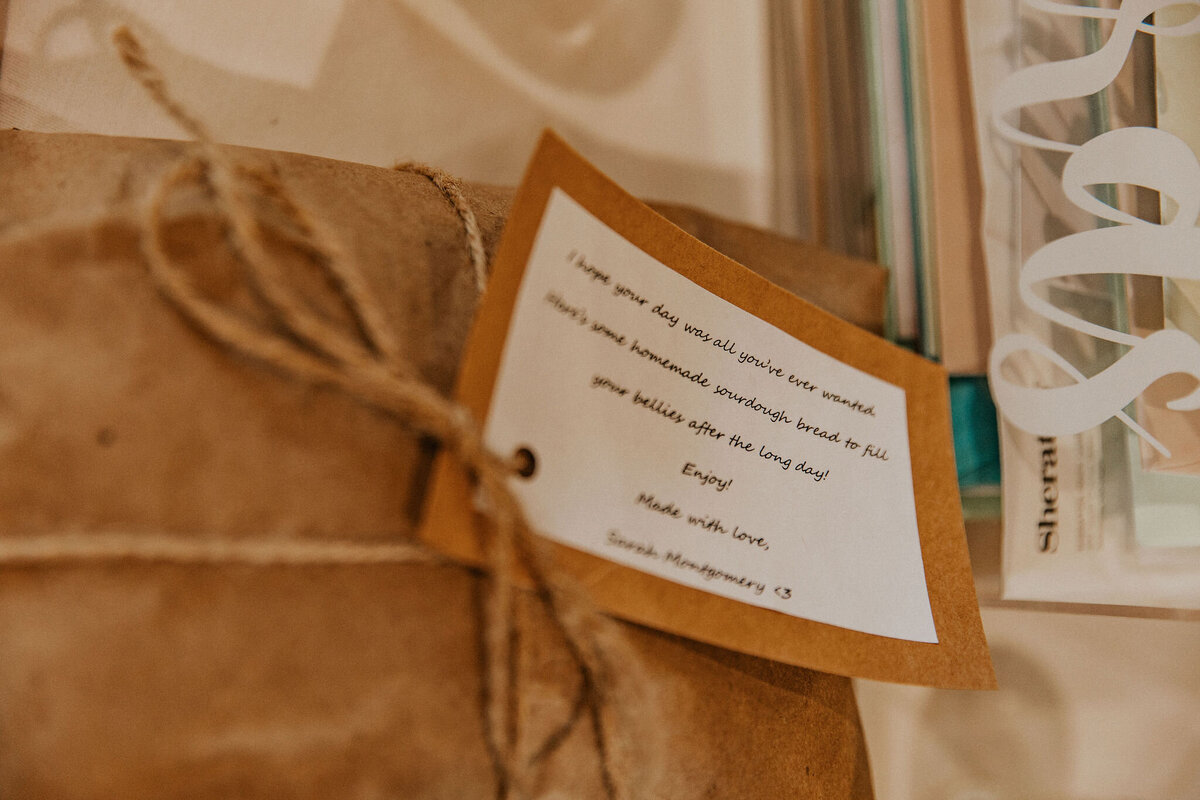 I hope your day was all you've ever wanted.
Here's some homemade sourdough bread to fill
your bellies after the long day!
Enjoy!
Made with love,
Sarah Montgomery <3